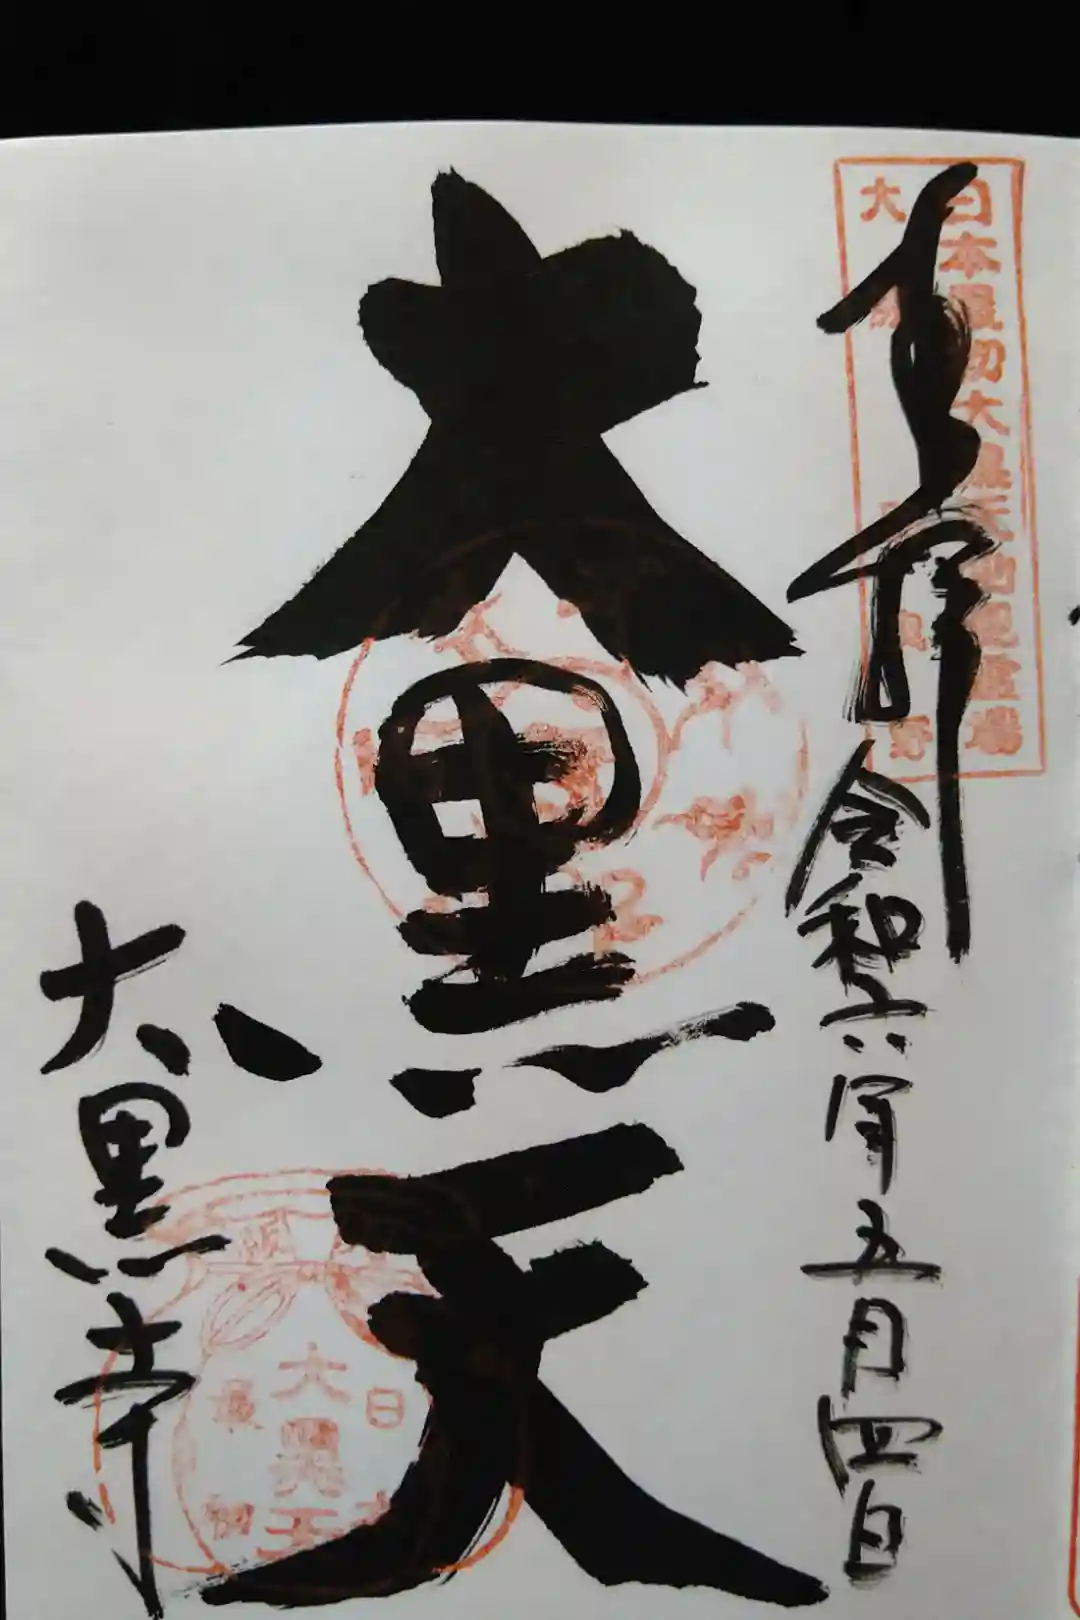 奉拝
令和六年五月四日
日本最初大黒天出現霊場
大黒天
大黒寺
日本
最初
大黒天